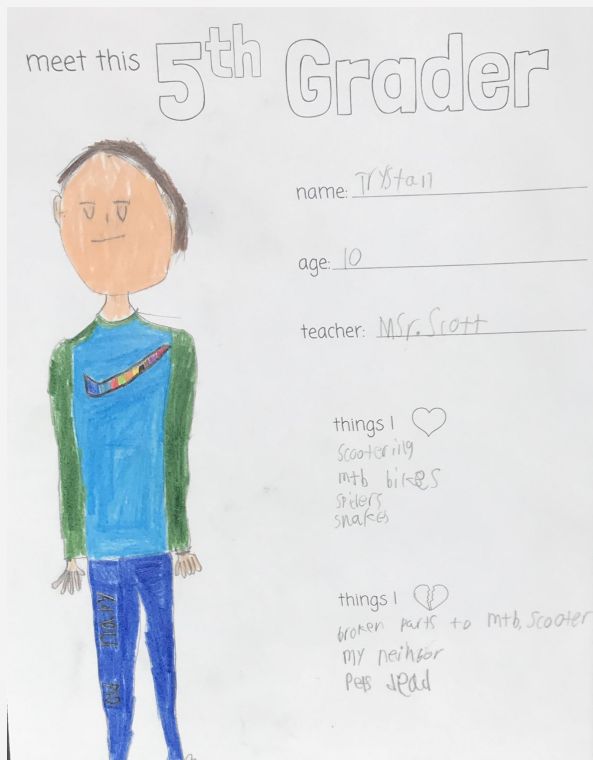 meet this 5th Grader
name: Trystan
age: 10
teacher: MSr. Scott
things I
scootering
mtb bikes
spiders
snakes
things I
broken parts to mtb, scooter
my neihbor
Pets dead